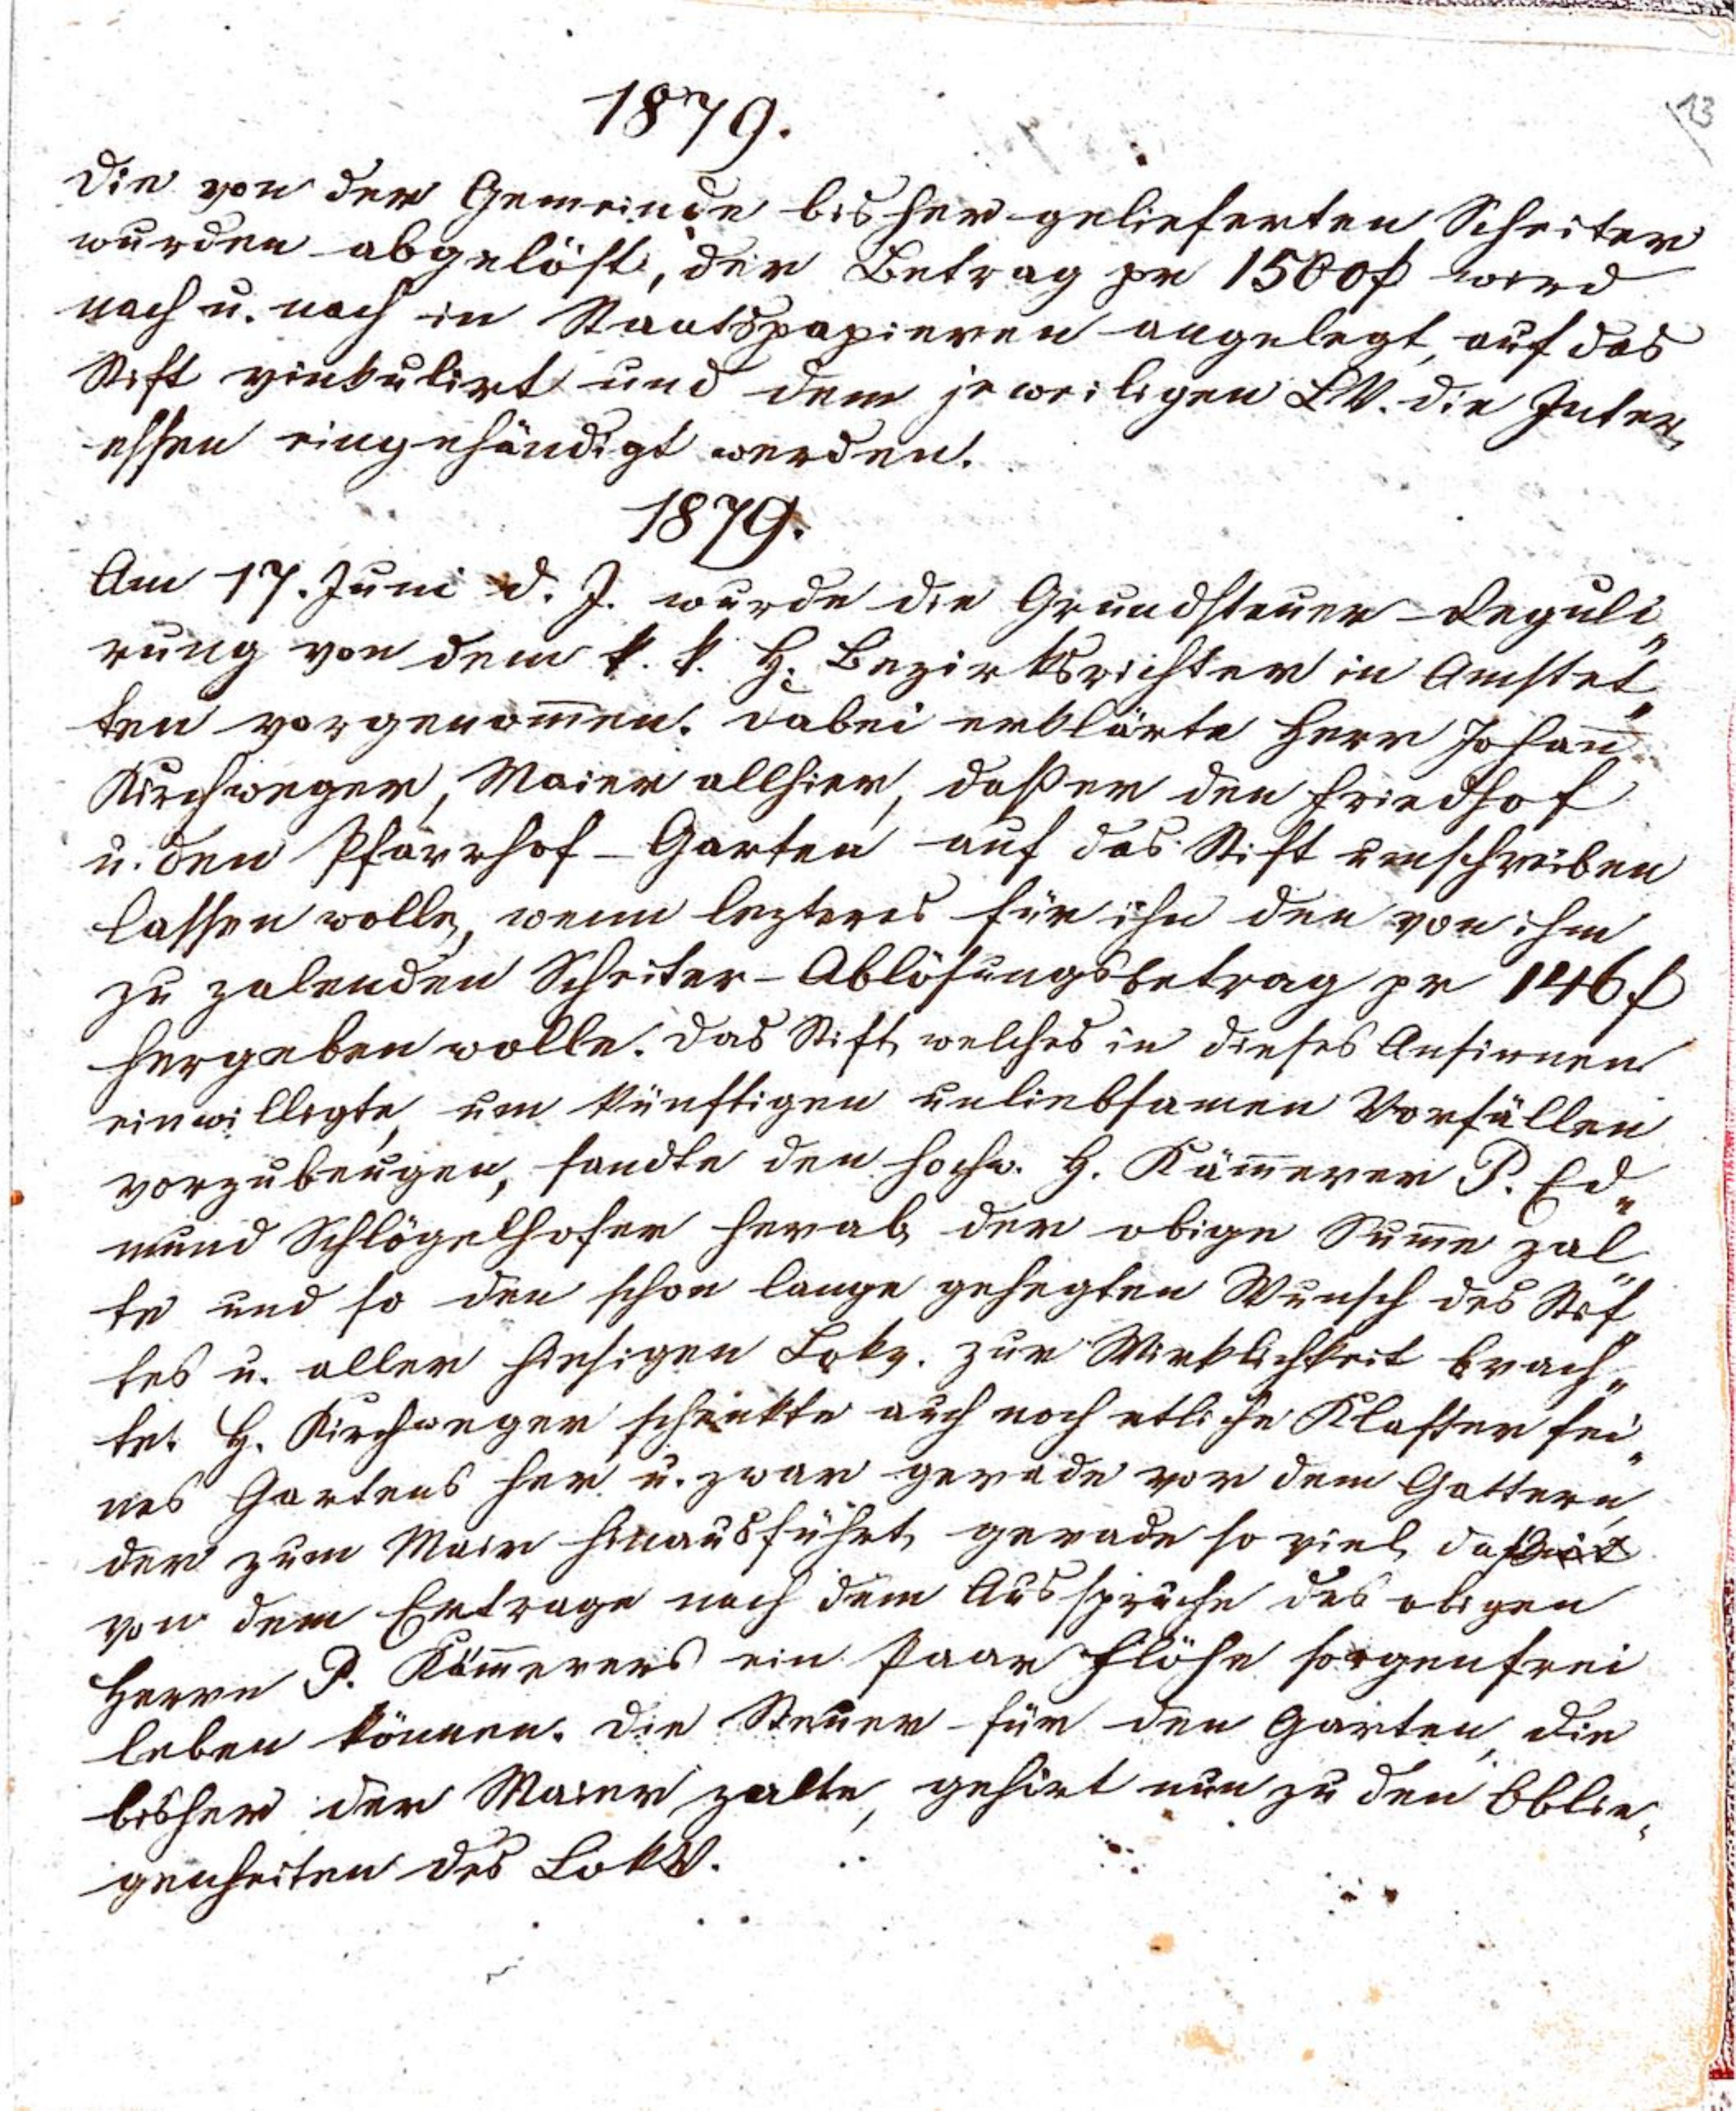 13
1879.
Die von der Gemeinde bisher gelieferten Scheiter
wurden abgelöst, der Betrag pr 1500 f wird
nach u. nach in Staatspapieren angelegt, auf das
Stift vinkulirt und dem jeweiligen LV. die Inter„
essen eingehändigt werden.
1879.
Am 17. Juni d. J. wurde die Grundsteuer-Reguli„
rung von dem k. k. H. Bezirksrichter in Amstet„
ten vorgenom̄en. Dabei erklärte Herr Johan̄
Kirchweger, Maier allhier, daß er den Friedhof
u. den Pfarrhof-Garten auf das Stift umschreiben
lassen wolle, wenn lezteres für ihn den von ihm
zu zalenden Scheiter-Ablösungsbetrag pr 146 f
hergeben wolle. Das Stift, welches in dieses Ansinnen
einwilligte, um künftigen unliebsamen Vorfällen
vorzubeugen, sandte den hochw. H. Käm̄erer P. Ed„
mund Schlögelhofer herab, der obige Sum̄e zal„
te und so den schon lange gehegten Wunsch des Stif„
tes u. aller hiesigen Lokv. zur Wirklichkeit brach„
te. H. Kirchweger schenkte auch noch etliche Klafter sei„
nes Gartens her u. zwar gerade vor dem Gattern,
der zum Maier hinausführt, gerade so viel, daß
von dem Ertrage nach dem Ausspruche des obigen
Herrn P. Käm̄erers ein Paar Flöhe sorgenfrei
leben können. Die Steuer für den Garten, die
bisher der Maier zalte, gehört nun zu den Oblie„
genheiten des LokV.